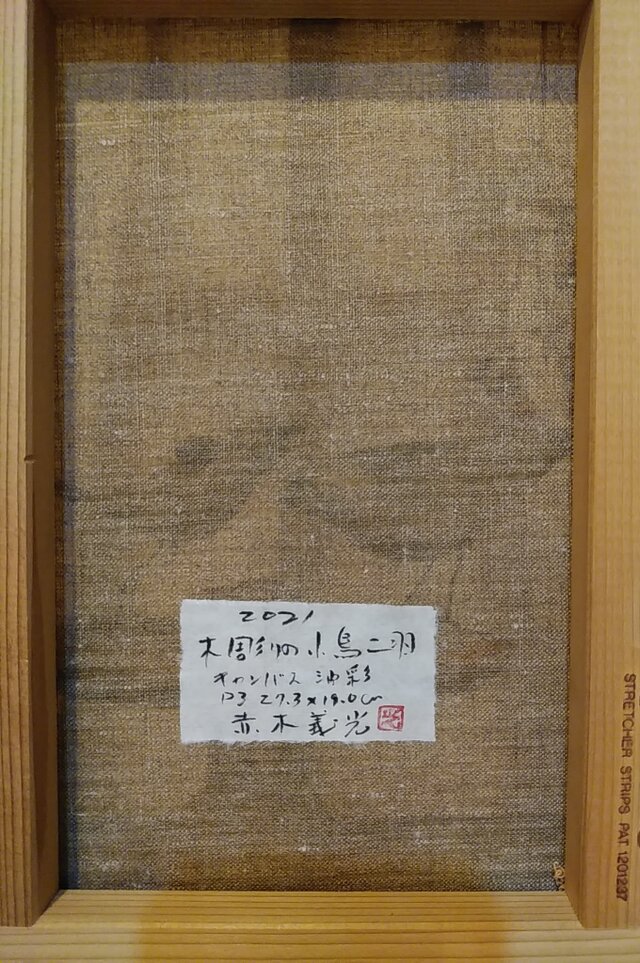 2021
木彫の小鳥二羽
キャンバス 油彩
P3 27.3×19.0cm
赤木義光
STRETCHER STRIPS PAT 1201237